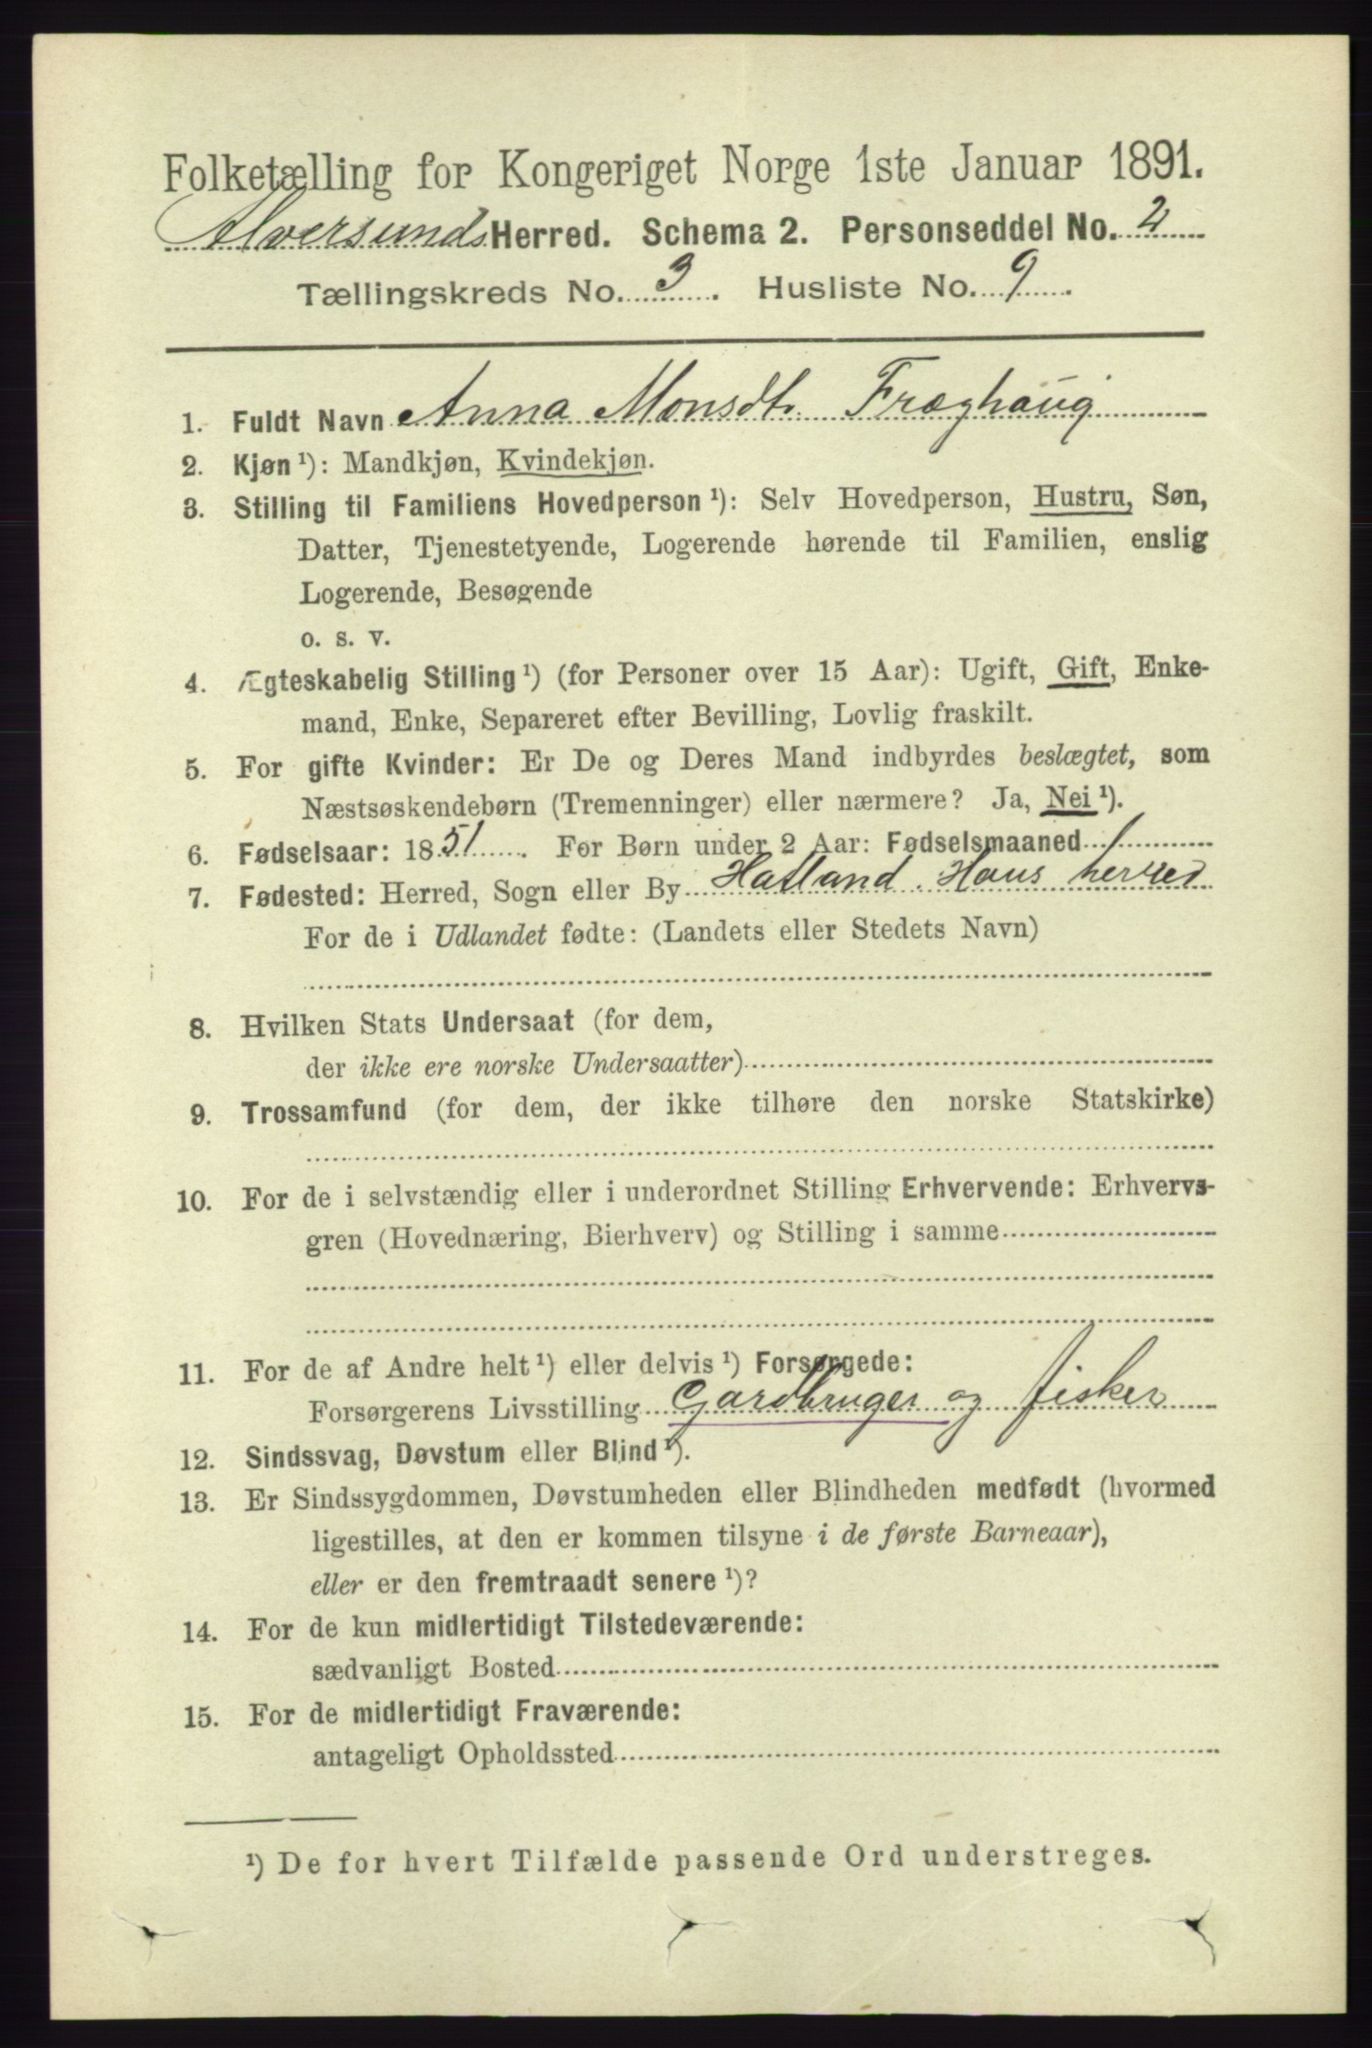 Folketælling for Kongeriget Norge 1ste Januar 1891.
Alversunds Herred. Schema 2. Personseddel No. 2
Tællingskreds No. 3. Husliste No. 9.
1. Fuldt Navn Anna Monsdt. Fræghaug
2. Kjøn ¹): Mandkjøn, Kvindekjøn.
3. Stilling til Familiens Hovedperson ¹): Selv Hovedperson, Hustru, Søn,
Datter, Tjenestetyende, Logerende hørende til Familien, enslig
Logerende, Besøgende
o. s. v.
4. Ægteskabelig Stilling ¹) (for Personer over 15 Aar): Ugift, Gift, Enke-
mand, Enke, Separeret efter Bevilling, Lovlig fraskilt.
5. For gifte Kvinder: Er De og Deres Mand indbyrdes beslægtet, som
Næstsøskendebørn (Tremenninger) eller nærmere? Ja, Nei ¹).
6. Fødselsaar: 1851. For Børn under 2 Aar: Fødselsmaaned /
7. Fødested: Herred, Sogn eller By Hatland. Haus herred
For de i Udlandet fødte: (Landets eller Stedets Navn)
8. Hvilken Stats Undersaat (for dem,
der ikke ere norske Undersaatter)
9. Trossamfund (for dem, der ikke tilhøre den norske Statskirke)
10. For de i selvstændig eller i underordnet Stilling Erhvervende: Erhvervs-
gren (Hovednæring, Bierhverv) og Stilling i samme
11. For de af Andre helt ¹) eller delvis ¹) Forsørgede:
Forsørgerens Livsstilling Gardbruger og fisker
12. Sindssvag, Døvstum eller Blind ¹).
13. Er Sindssygdommen, Døvstumheden eller Blindheden medfødt (hvormed
ligestilles, at den er kommen tilsyne i de første Barneaar),
eller er den fremtraadt senere ¹)?
14. For de kun midlertidigt Tilstedeværende:
sædvanligt Bosted
15. For de midlertidigt Fraværende:
antageligt Opholdssted
¹) De for hvert Tilfælde passende Ord understreges.